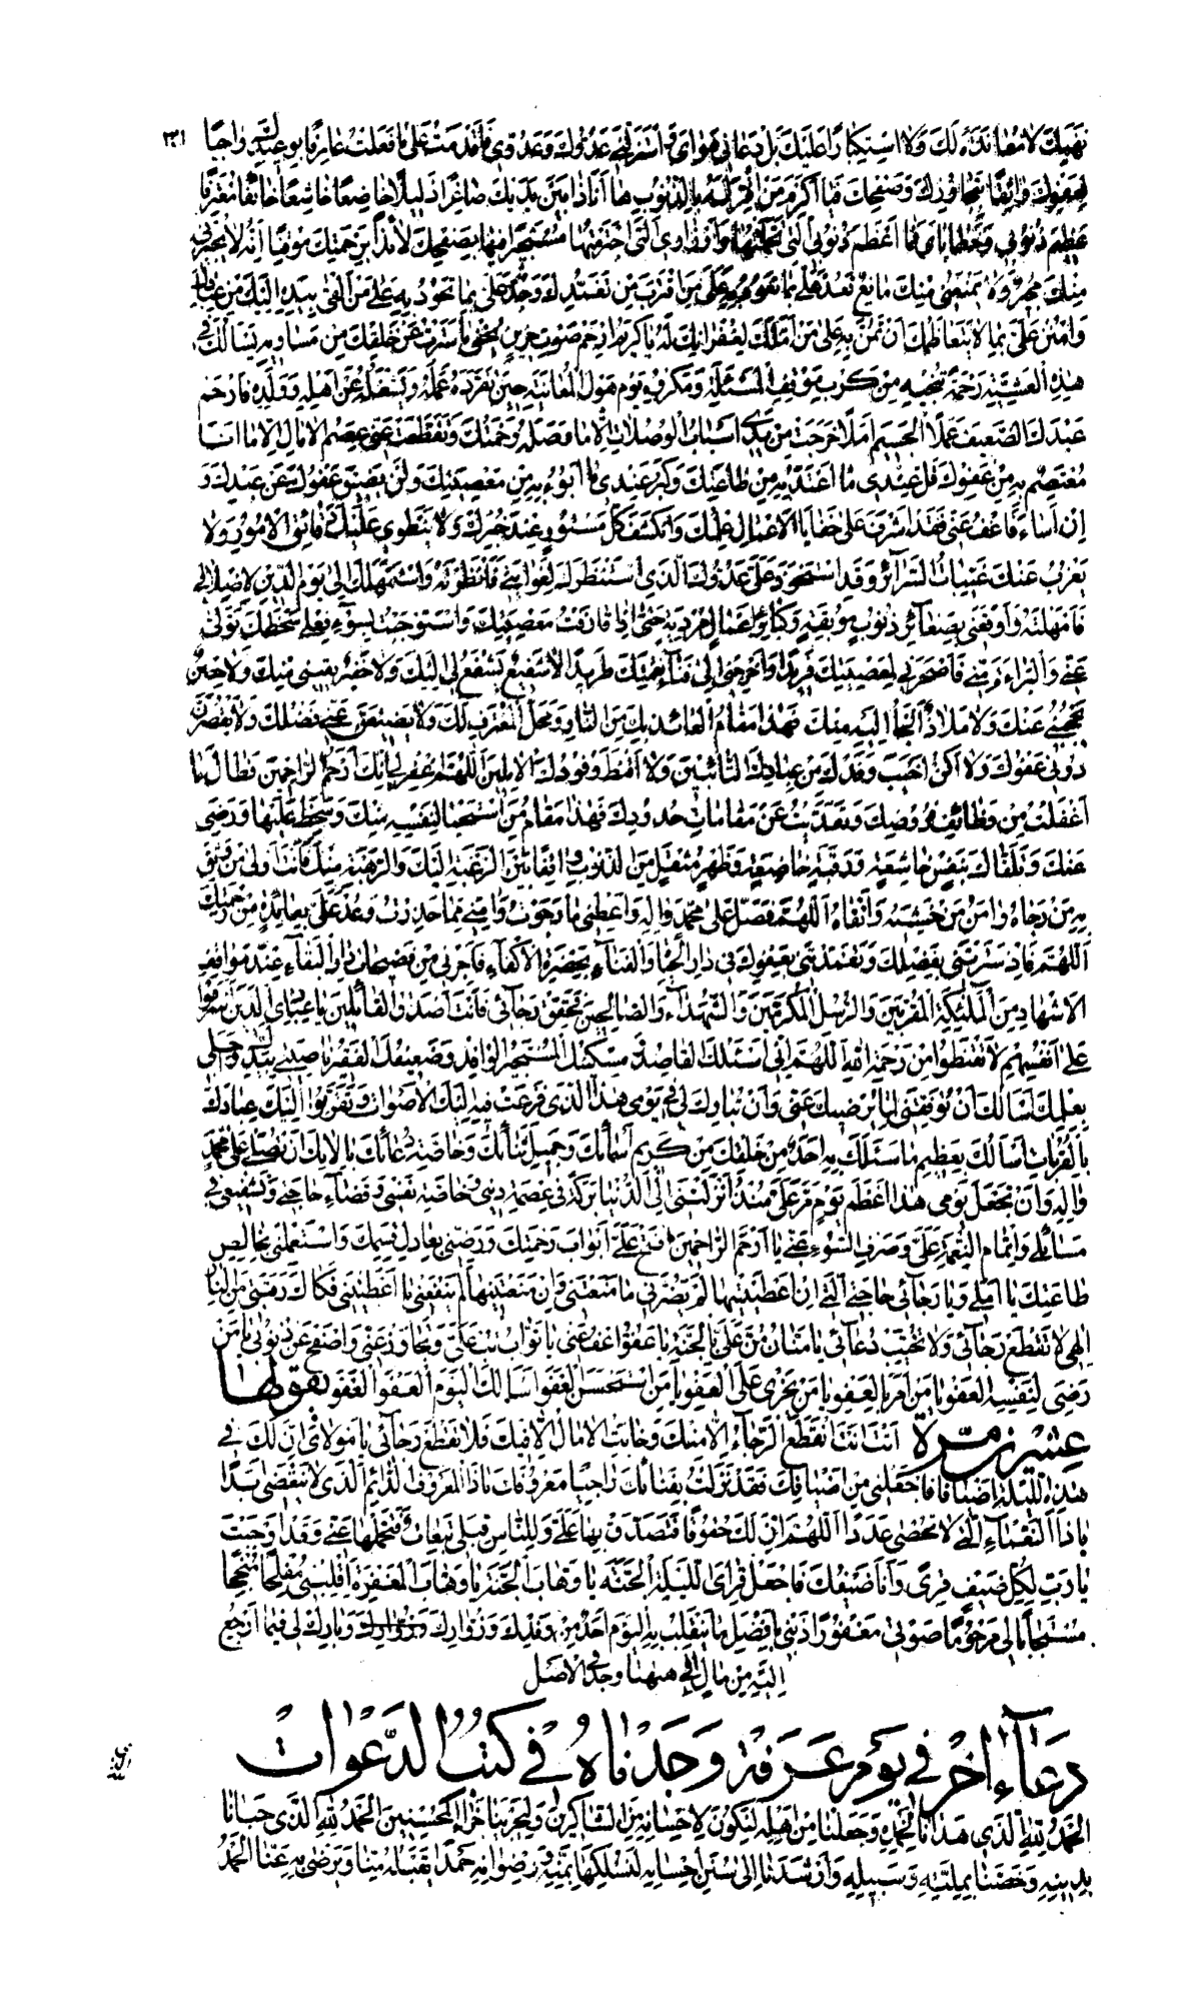 نَهْيِكَ لا مُعانَدَةً لَكَ وَلَا اسْتِكْباراً عَلَيْكَ بَلْ دَعاني هَوايَ وَاسْتَزَلَّني عَدُوُّكَ وَعَدُوّي فَاَقْدَمْتُ عَلى ما فَعَلْتُ عارِفاً بِوَعيدِكَ راجِياً ٣٣١
لِعَفْوِكَ واثِقاً بِتَجاوُزِكَ وَصَفْحِكَ فَيا اَكْرَمَ مَنْ اُقِرَّ لَهُ بِالذُّنُوبِ ها اَنَا ذا بَيْنَ يَدَيْكَ صاغِراً ذَليلاً خاضِعاً خاشِعاً خائِفاً مُعْتَرِفاً
عَظيمَ ذُنُوبي وَخَطايايَ فَما اَعْظَمَ ذُنُوبِيَ الَّتي تَحَمَّلْتُها وَاَوْزارِيَ الَّتِي اجْتَرَمْتُها مُسْتَجيراً فيها بِصَفْحِكَ لائِذاً بِرَحْمَتِكَ مُوقِناً اَنَّهُ لا يُجيرُني
مِنْكَ مُجيرٌ وَلا يَمْنَعُني مِنْكَ مانِعٌ فَعُدْ عَلَيَّ بِما تَعُودُ بِهِ عَلى مَنِ اقْتَرَفَ مِنْ تَغَمُّدِكَ وَجُدْ عَلَيَّ بِما تَجُودُ بِهِ عَلى مَنْ اَلْقى بِيَدِهِ اِلَيْكَ مِنْ عِبادِكَ
وَامْنُنْ عَلَيَّ بِما لا يَتَعاظَمُكَ اَنْ تَمُنَّ بِهِ عَلى مَنْ اَمَّلَكَ لِغُفْرانِكَ لَهُ يا كَريمُ ارْحَمْ صَوْتَ حَزينٍ يُخْفي ما سَتَرْتَ عَنْ خَلْقِكَ مِنْ مَساويهِ يَسْأَلُكَ في
هذِهِ الْعَشِيَّةِ رَحْمَةً تُنْجيهِ مِنْ كَرْبِ مَوْقِفِ الْمَسْئَلَةِ وَمَكْرُوهِ يَوْمِ هَوْلِ الْمُعايَنَةِ حينَ تُفَرِّدُهُ عَمَلُهُ وَيَشْغَلُهُ عَنْ اَهْلِهِ وَوَلَدِهِ فَارْحَمْ
عَبْدَكَ الضَّعيفَ عَمَلاً الْجَسيمَ اَمَلاً خَرَجَتْ مِنْ يَدي اَسْبابُ الْوُصُلاتِ اِلّا ما وَصَلَهُ رَحْمَتُكَ وَتَقَطَّعَتْ عَنّي عِصَمُ الْآمالِ اِلّا ما اَنَا
مُعْتَصِمٌ بِهِ مِنْ عَفْوِكَ قَلَّ عِنْدي ما اَعْتَدُّ بِهِ مِنْ طاعَتِكَ وَكَبُرَ عِنْدي ما اَبُوءُ بِهِ مِنْ مَعْصِيَتِكَ وَلَنْ يَضيقَ عَفْوُكَ عَنْ عَبْدِكَ وَ
اِنْ اَساءَ فَاعْفُ عَنّي فَقَدْ اَشْرَفَ عَلى خَفايَا الْاَعْمالِ عِلْمُكَ وَانْكَشَفَ كُلُّ مَسْتُورٍ عِنْدَ خُبْرِكَ وَلا يَنْطَوي عَلَيْكَ دَقائِقُ الْاُمُورِ وَلا
يَعْزُبُ عَنْكَ غَيِّباتُ السَّرآئِرِ وَقَدِ اسْتَحْوَذَ عَلَيَّ عَدُوُّكَ الَّذي اسْتَنْظَرَكَ لِغَوايَتي فَاَنْظَرْتَهُ وَاسْتَمْهَلَكَ اِلى يَوْمِ الدّينِ لِاِضْلالي
فَاَمْهَلْتَهُ وَاَوْقَعَني بِصَغآئِرِ ذُنُوبٍ مُوبِقَةٍ وَكَبائِرِ اَعْمالٍ مُرْدِيَةٍ حَتّى اِذا قارَفْتُ مَعْصِيَتَكَ وَاسْتَوْجَبْتُ بِسُوءِ فِعْلي سَخْطَكَ تَوَلّى
عَنّي وَالْبَراءَةَ مِنّي فَاَصْحَرَني لِغَضَبِكَ فَريداً وَاَخْرَجَني اِلى فَنآءِ نِقْمَتِكَ طَريداً لا شَفيعٌ يَشْفَعُ لي اِلَيْكَ وَلا خَفيرٌ يَقيني مِنْكَ وَلا حِصْنٌ
يَحْجُبُني عَنْكَ وَلا مَلاذٌ اَلْجَأُ اِلَيْهِ مِنْكَ فَهذا مَقامُ الْعائِذِ بِكَ مِنَ النّارِ وَمَحَلُّ الْمُعْتَرِفِ لَكَ وَلا يَضيقَنَّ عَنّي فَضْلُكَ وَلا يَقْصُرَنَّ
دُوني عَفْوُكَ وَلا اَكُنْ اَخْيَبَ وَفْدِكَ مِنْ عِبادِكَ التّائِبينَ وَلا اَقْنَطَ وُفُودِكَ الْآمِلينَ اَللّهُمَّ اغْفِرْ لي اِنَّكَ اَرْحَمُ الرّاحِمينَ فَطالَ ما
اَغْفَلْتُ مِنْ وَظائِفِ فُرُوضِكَ وَتَعَدَّيْتُ عَنْ مَقاماتِ حُدُودِكَ فَهذا مَقامُ مَنِ اسْتَحْيى لِنَفْسِهِ مِنْكَ وَسَخِطَ عَلَيْها وَرَضِيَ
عَنْكَ وَتَلَقّاكَ بِنَفْسٍ خاشِعَةٍ وَرَقَبَةٍ خاضِعَةٍ وَظَهْرٍ مُثْقَلٍ مِنَ الذُّنُوبِ واقِفاً بَيْنَ الرَّغْبَةِ اِلَيْكَ وَالرَّهْبَةِ مِنْكَ فَاَنْتَ اَوْلى مَنْ وَثِقَ
بِهِ مَنْ رَجاهُ وَآمَنَ مَنْ خَشِيَهُ وَاتَّقاهُ اَللّهُمَّ فَصَلِّ عَلى مُحَمَّدٍ وَآلِهِ وَاَعْطِني ما رَجَوْتُ وَآمِنّي مِمّا حَذِرْتُ وَعُدْ عَلَيَّ بِعائِدَةٍ مِنْ رَحْمَتِكَ
اَللّهُمَّ فَاِذْ سَتَرْتَني بِفَضْلِكَ وَتَغَمَّدْتَني بِعَفْوِكَ في دارِ الْحَيا وَالْفَنآءِ بِحَضْرَةِ الْاَكْفآءِ فَاَجِرْني مِنْ فَضيحاتِ دارِ الْبَقآءِ عِنْدَ مَواقِفِ
الْاَشْهادِ مِنَ الْمَلئِكَةِ الْمُقَرَّبينَ وَالرُّسُلِ الْمُكَرَّمينَ وَالشُّهَدآءِ وَالصّالِحينَ فَحَقِّقْ رَجآئي فَاَنْتَ اَصْدَقُ الْقآئِلينَ يا عِبادِيَ الَّذينَ اَسْرَفُوا
عَلى اَنْفُسِهِمْ لا تَقْنَطُوا مِنْ رَحْمَةِ اللهِ اَللّهُمَّ اِنّي اَسْئَلُكَ الْقاصِدُ مِسْكينُكَ الْمُسْتَجيرُ الْوافِدُ وَضَعيفُكَ الْفَقيرُ ناصِيَتي بِيَدِكَ وَاَجَلي
بِعِلْمِكَ اَسْأَلُكَ اَنْ تُوَفِّقَني لِما يُرْضيكَ عَنّي وَاَنْ تُبارِكَ لي في يَوْمي هذَا الَّذي فَزِعَتْ فيهِ اِلَيْكَ الْاَصْواتُ وَتَقَرَّبُوا اِلَيْكَ عِبادُكَ
بِالْقُرُباتِ اَسْأَلُكَ بِعَظيمِ ما سَئَلَكَ بِهِ اَحَدٌ مِنْ خَلْقِكَ مِنْ كَريمِ اَسْمائِكَ وَجَميلِ ثَنائِكَ وَخاصَّةِ دُعائِكَ بِآلائِكَ اَنْ تُصَلِّيَ عَلى مُحَمَّدٍ
وَآلِهِ وَاَنْ تَجْعَلَ يَوْمي هذا اَعْظَمَ يَوْمٍ مَرَّ عَلَيَّ مُنْذُ اَنْزَلْتَني اِلَى الدُّنْيا بَرَكَةً في عِصْمَةِ ديني وَخاصَّةِ نَفْسي وَقَضآءِ حاجَتي وَتَشْفيعي في
مَسائِلي وَاِتْمامِ النِّعْمَةِ عَلَيَّ وَصَرْفِ السُّوءِ عَنّي يا اَرْحَمَ الرّاحِمينَ افْتَحْ عَلَيَّ اَبْوابَ رَحْمَتِكَ وَرَضِّني بِعادِلِ قِسَمِكَ وَاسْتَعْمِلْني بِخالِصِ
طاعَتِكَ يا اَمَلي وَيا رَجآئي حاجَتِيَ الَّتي اِنْ اَعْطَيْتَنيها لَمْ يَضُرَّني ما مَنَعْتَني وَاِنْ مَنَعْتَنيها لَمْ يَنْفَعْني ما اَعْطَيْتَني فَكاكَ رَقَبَتي مِنَ النّارِ
اِلهي لا تَقْطَعْ رَجآئي وَلا تُخَيِّبْ دُعآئي يا مَنّانُ مُنَّ عَلَيَّ بِالْجَنَّةِ يا عَفُوُّ اعْفُ عَنّي يا تَوّابُ تُبْ عَلَيَّ وَتَجاوَزْ عَنّي وَاصْفَحْ عَنْ ذُنُوبي يا مَنْ
رَضِيَ لِنَفْسِهِ الْعَفْوَ يا مَنْ اَمَرَ بِالْعَفْوِ يا مَنْ يَجْزي عَلَى الْعَفْوِ يا مَنِ اسْتَحْسَنَ الْعَفْوَ اَسْأَلُكَ الْيَوْمَ الْعَفْوَ الْعَفْوَ يقولها
عشرين مرة اَنْتَ اَنْتَ انْقَطَعَ الرَّجآءُ اِلّا مِنْكَ وَخابَتِ الْآمالُ اِلّا فيكَ فَلا تَقْطَعْ رَجآئي يا مَوْلايَ اِنَّ لَكَ في
هذِهِ اللَّيْلَةِ اَضْيافاً فَاجْعَلْني مِنْ اَضْيافِكَ فَقَدْ نَزَلْتُ بِفِنائِكَ راجِياً مَعْرُوفَكَ يا ذَا الْمَعْرُوفِ الدّائِمِ الَّذي لا يَنْقَضي اَبَداً
يا ذَا النَّعْمآءِ الَّتي لا تُحْصى عَدَداً اَللّهُمَّ اِنَّ لَكَ حُقُوقاً فَتَصَدَّقْ بِها عَلَيَّ وَلِلنّاسِ قِبَلي تَبِعاتٌ فَتَحَمَّلْها عَنّي وَقَدْ اَوْجَبْتَ
يا رَبِّ لِكُلِّ ضَيْفٍ قِرًى وَاَنَا ضَيْفُكَ فَاجْعَلْ قِرايَ اللَّيْلَةَ الْجَنَّةَ يا وَهّابَ الْجَنَّةِ يا وَهّابَ الْمَغْفِرَةِ اقْلِبْني مُفْلِحاً مُنْجِحاً
مُسْتَجاباً لي مَرْحُوماً صَوْتي مَغْفُوراً ذَنْبي بِاَفْضَلِ ما يَنْقَلِبُ بِهِ الْيَوْمَ اَحَدٌ مِنْ وَفْدِكَ وَزُوّارِكَ وَبارِكْ لي فيما اَرْجِعُ
اِلَيْهِ مِنْ مالٍ الى ههنا وجد في الاصل
دعاء اخر في يوم عرفة وجدناه في كتب الدعوات
اَلْحَمْدُ لِلّهِ الَّذي هَدانا لِحَمْدِهِ وَجَعَلَنا مِنْ اَهْلِهِ لِنَكُونَ لِاِحْسانِهِ مِنَ الشّاكِرينَ وَلِيَجْزِيَنا جَزاءَ الْمُحْسِنينَ اَلْحَمْدُ لِلّهِ الَّذي حَبانا
بِدينِهِ وَخَصَّنا بِمِلَّتِهِ وَسَبيلِهِ وَاَرْشَدَنا اِلى سُنَنِ اِحْسانِهِ لِنَسْلُكَها بِمَنِّهِ وَرِضْوانِهِ حَمْداً يَتَقَبَّلُهُ مِنّا وَيَرْضى بِهِ عَنّا اَلْحَمْدُ